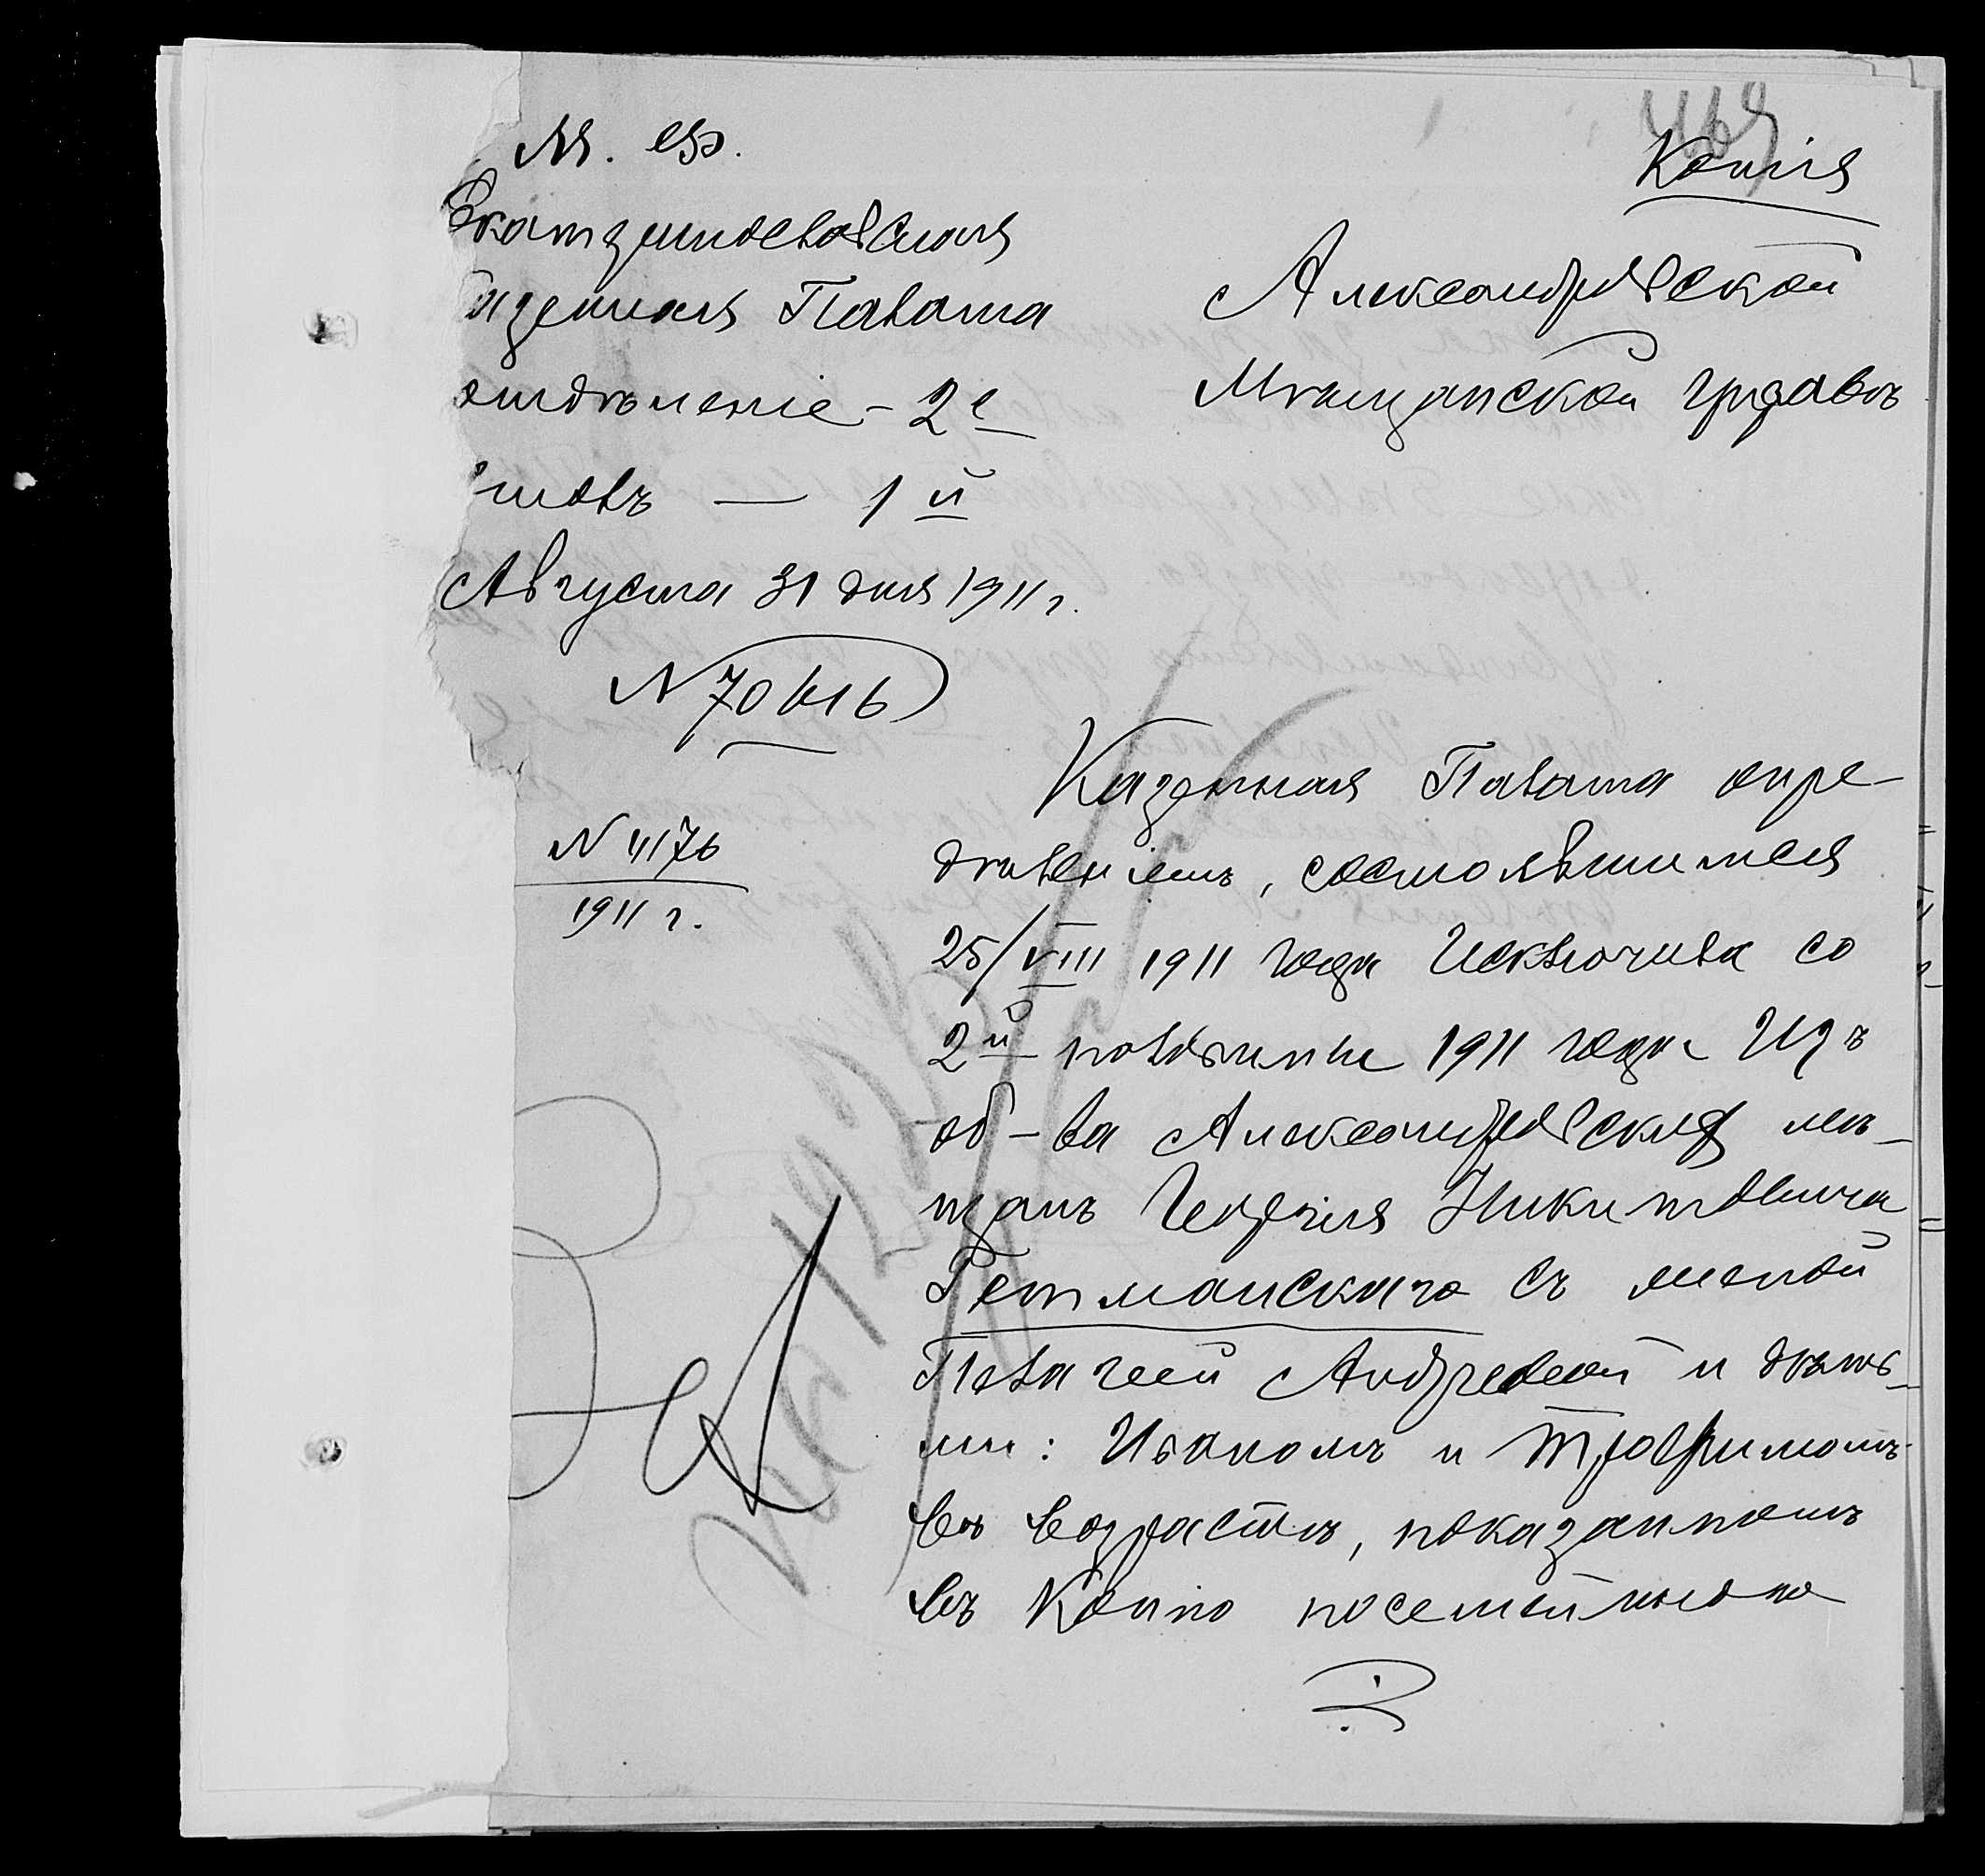 М. Ф.
Екатеринославская
Казенная Палата
отдѣленіе - 2е
столъ — 1й
Августа 31 дня 1911 г.
N 70616
N 4176
1911 г.
Копія
Александровской
Мѣщанской Управѣ
Казенная Палата опре-
дѣленіемъ, состоявшимся
25/VIII 1911 года Исключила со
2й половины 1911 года Изъ
об-ва Александровскихъ мѣ-
щанъ Георгія Никитовича
Гетманскаго съ женой
Пелагеей Андреевой и дѣть-
ми: Иваномъ и Трофимомъ
въ возрастѣ, показанномъ
въ Копіи посемейнаго